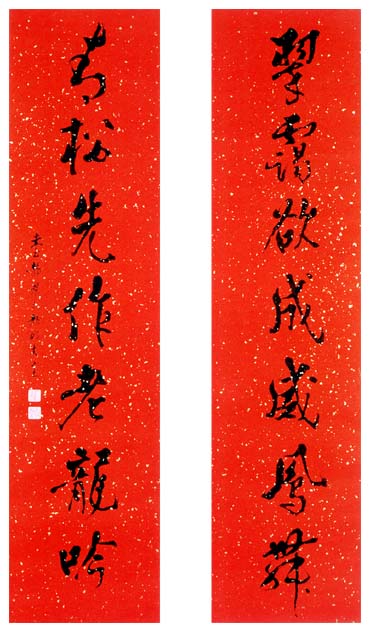 翠靄欲成威鳳舞
青松先作老龍吟